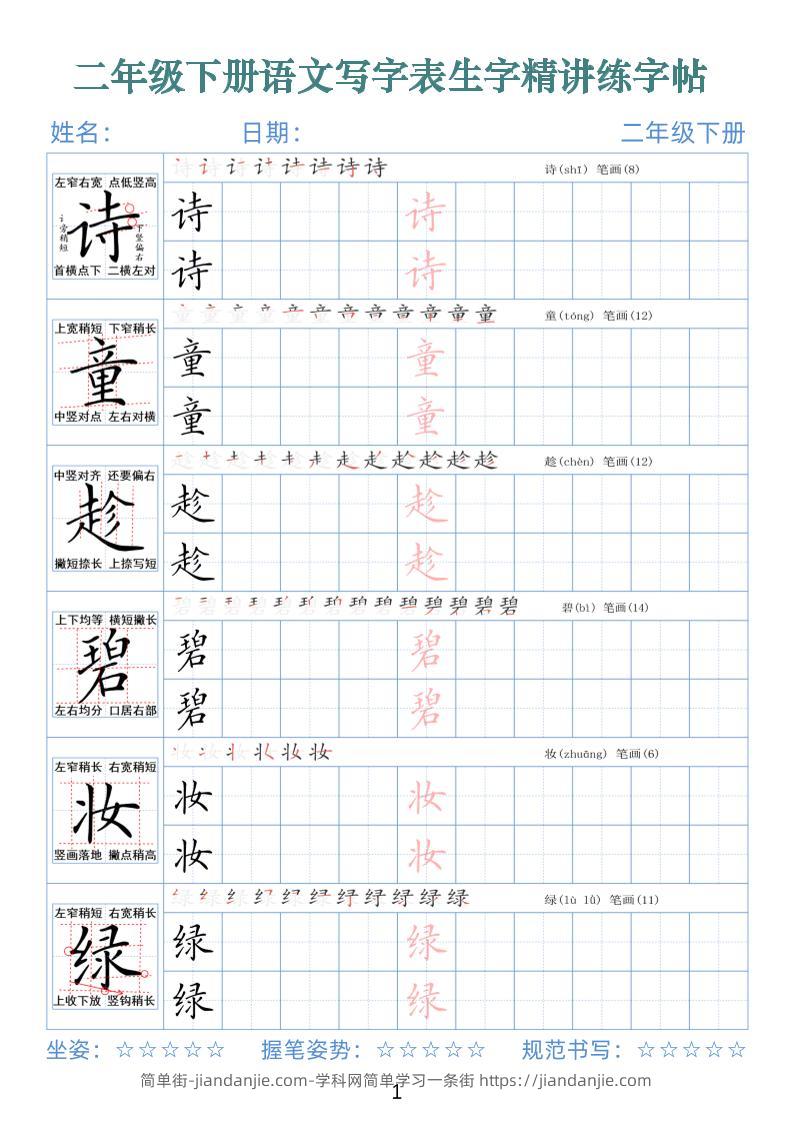 二年级下册语文写字表生字精讲练字帖
姓名： 日期： 二年级下册
诗(shī) 笔画(8)
左窄右宽 点低竖高
诗
讠旁稍短
下竖偏右
首横点下 二横左对
诗 诗
诗 诗
童(tóng) 笔画(12)
上宽稍短 下窄稍长
童
中竖对点 左右对横
童 童
童 童
趁(chèn) 笔画(12)
中竖对齐 还要偏右
趁
撇短捺长 上捺写短
趁 趁
趁 趁
碧(bì) 笔画(14)
上下均等 横短撇长
碧
左右均分 口居右部
碧 碧
碧 碧
妆(zhuāng) 笔画(6)
左窄稍长 右宽稍短
妆
竖画落地 撇点稍高
妆 妆
妆 妆
绿(lù lǜ) 笔画(11)
左窄稍短 右宽稍长
绿
上收下放 竖钩稍长
绿 绿
绿 绿
坐姿：☆☆☆☆☆ 握笔姿势：☆☆☆☆☆ 规范书写：☆☆☆☆☆
简单街-jiandanjie.com-学科网简单学习一条街 https://jiandanjie.com
1